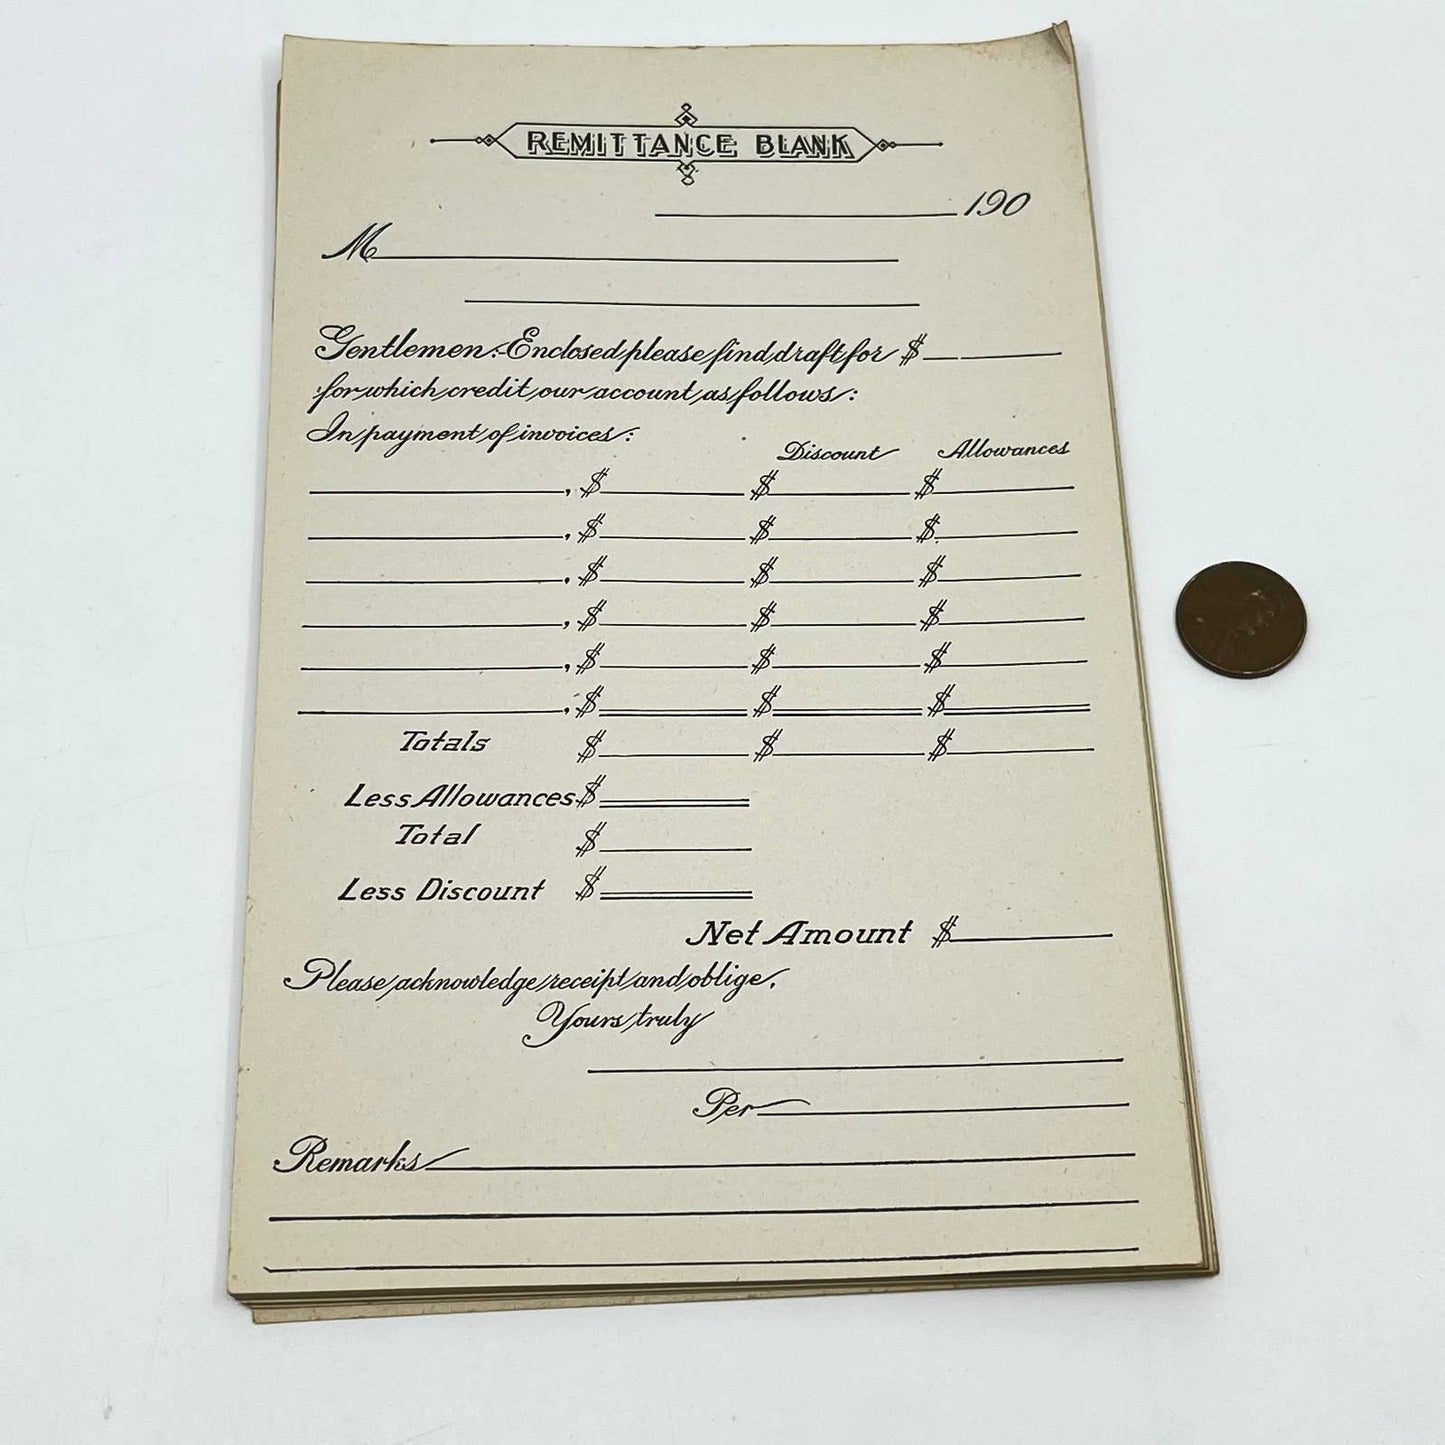 REMITTANCE BLANK
190
M
Gentlemen:-Enclosed please find draft for $
for which credit our account as follows:
In payment of invoices:
Discount Allowances
, $ $ $
, $ $ $
, $ $ $
, $ $ $
, $ $ $
, $ $ $
Totals $ $ $
Less Allowances $
Total $
Less Discount $
Net Amount $
Please acknowledge receipt and oblige,
Yours truly
Per
Remarks